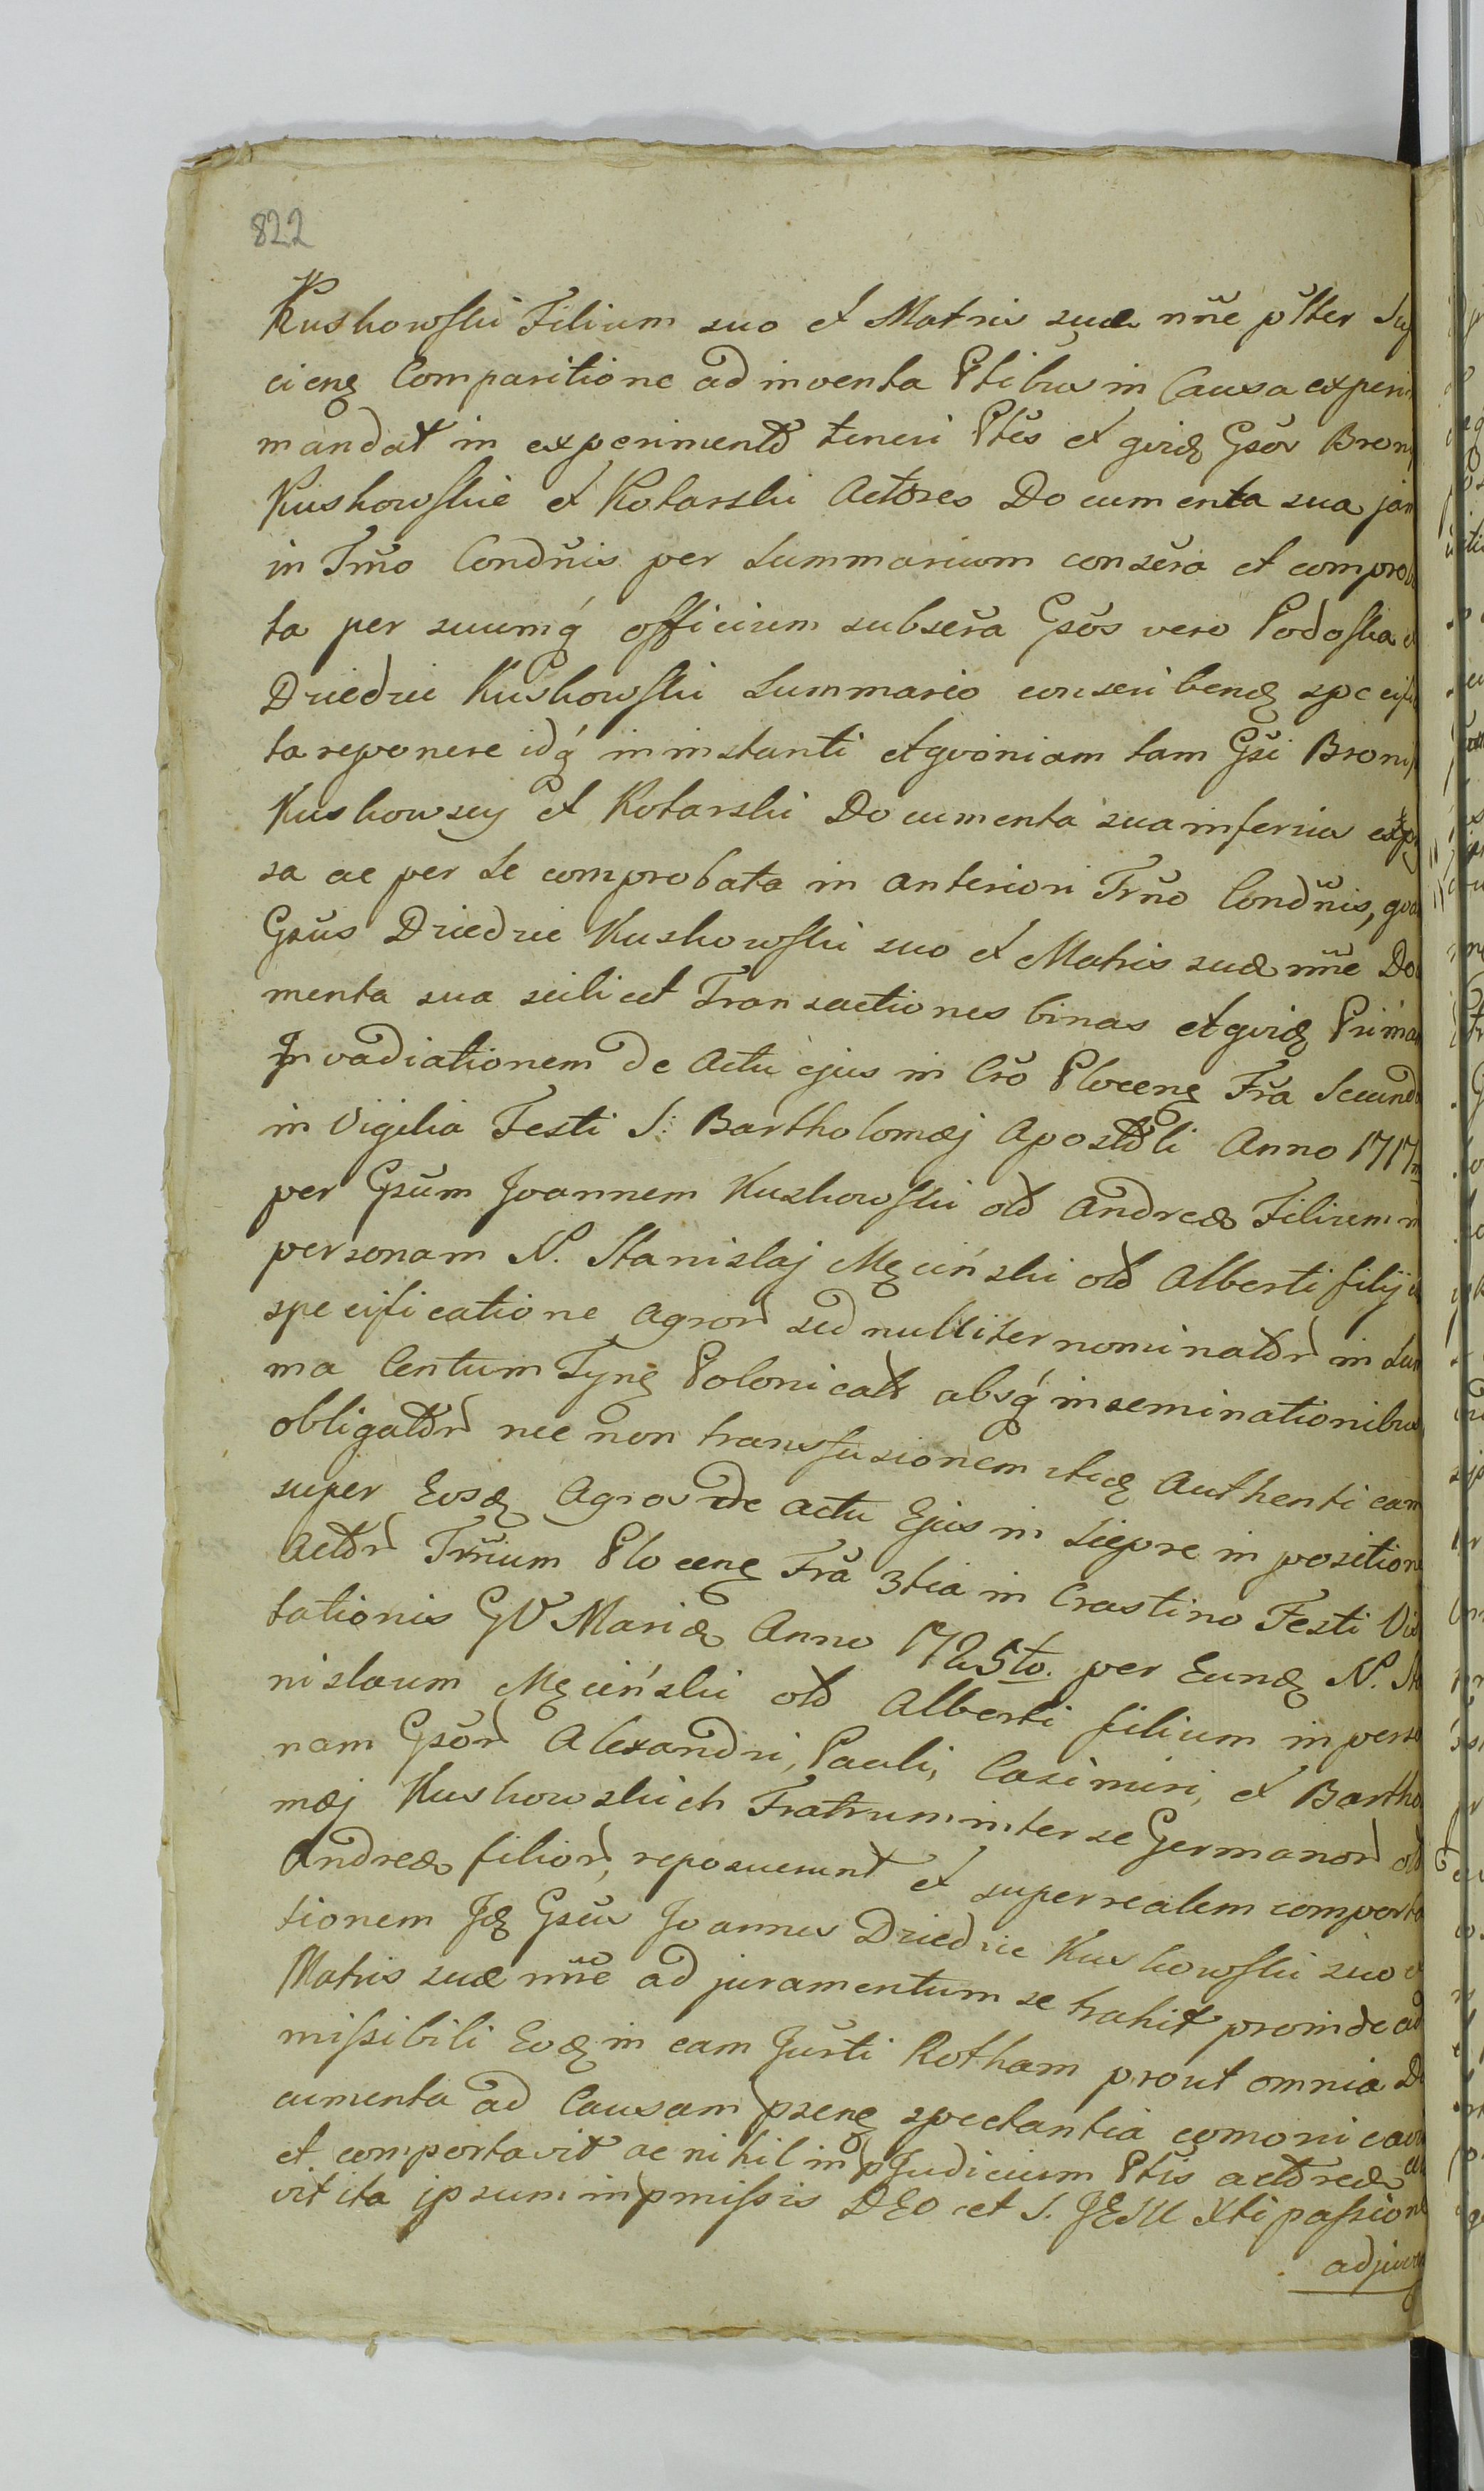 822
Kuskowski Filium suo et Matris suæ nñe pñter
cienę Comparitione ad inventa Ptibus in Causa experi
mandat in experimentõ teneri Ptes et qvidę Gsõs Bron
Kuskowskie et Kotarski Actores Documenta sua jam
in Trño Condñis per Summarium consera et comproba
ta per suumq́ officium subsera Gsõs vero Podoska et
Driedzic Kuskowski Summario conseribendę specifi
ta reponere idq́ in instanti et qvoniam tam Gsi Bronis
Kuskowscy et Kotarski Documenta sua inferius exp
sa ac per se comprobata in anteriori Trño Condñis, qva
Gsus Driedzic Kuskowski suo et Matris suæ nñe Do
menta sua scilicet Transactiones binas et qvidę Primam
Invadiationem de Actu ejus in Crõ Plocenę Fra Secunda
in Vigilia Festi S: Bartholomæj Apostõli Anno 1717
per Gsum Joannem Kuskowski olõ Andreæ Filium in
personam N. Stanislaj Męciński olõ Alberti filij
specificatione Agrorũ sed nulliter nominatorũ in Sum
ma Centum Tynę Polonicał absq́ inseminationibus
obligatorũ nec non transfusionem itidę Authenticam
super Eosdę Agros de actu Ejus in Siepre in positione
Actorũ Trium Plocenę Fra 3tia in Crastino Festi Visi
tationis G V Mariæ Anno 1725to. per Eundę N. Sta
nislaum Męciński olõ Alberti filium in perso
nam Gsorũ Alexandri, Pauli, Casimiri, et Bartho
mæj Kuskowskich Fratrum inter se Germanorũ olõ
Andreæ filiorũ, reposuerunt et super realem comporta
tionem Jdę Gsus Joannes Driedzic Kuskowski suo et
Matris suæ nñe ad juramentum se trahit proinde ad
missibili Eoðę in eam Jurti Rotham prout omnia Do
cumenta ad Causam psenę spectantia comonicavit
et comportavit ac nihil in pJudicium Ptis actoreæ
vit ita ipsum in pmissis DEO et S. JESU Xti passione
adjuva